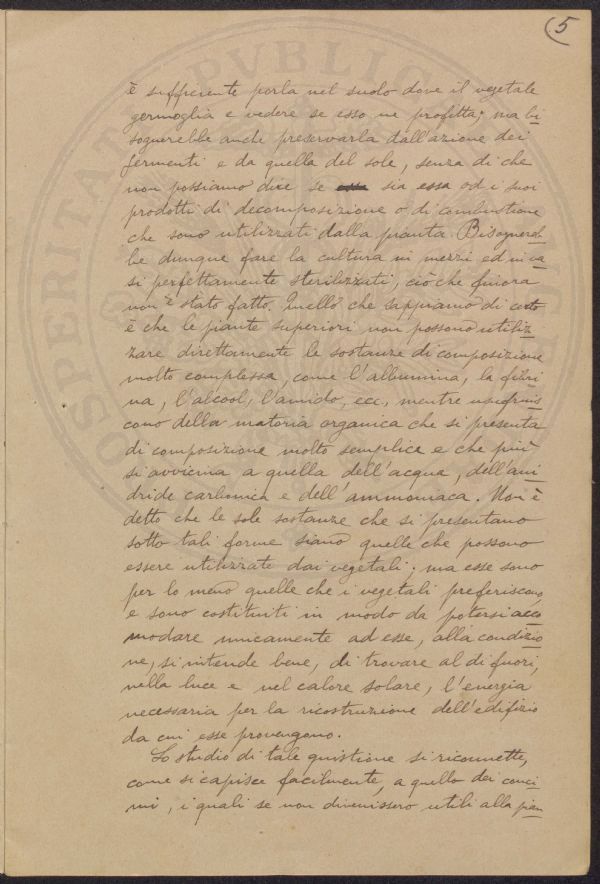 5
è sufficiente porla nel suolo dove il vegetale
germoglia e vedere se esso ne profitta; ma bi
sognerebbe anche preservarla dall'azione dei
fermenti e da quella del sole, senza di che
non possiamo dire se sia essa od i suoi
prodotti di decomposizione o di combustione
che sono utilizzati dalla pianta. Bisognereb
be dunque fare la cultura in mezzi ed in va
si perfettamente sterilizzati, ciò che finora
non è stato fatto. Quello che sappiamo di certo
è che le piante superiori non possono utiliz
zare direttamente le sostanze di composizione
molto complessa, come l'albumina, la fibri
na, l'alcool, l'amido, ecc, mentre usufruis
cono della materia organica che si presenta
di composizione molto semplice e che più
si avvicina a quella dell'acqua, dell'ani
dride carbonica e dell'ammoniaca. Non è
detto che le sole sostanze che si presentano
sotto tali forme siano quelle che possono
essere utilizzate dai vegetali; ma esse sono
per lo meno quelle che i vegetali preferiscono,
e sono costituiti in modo da potersi acco
modare unicamente ad esse, alla condizio
ne, si intende bene, di trovare al di fuori,
nella luce e nel calore solare, l'energia
necessaria per la ricostruzione dell'edifizio
da cui esse provengono.
Lo studio di tale quistione si riconnette,
come si capisce facilmente, a quello dei conci
mi, i quali se non divenissero utili alla pian
PVBLICA